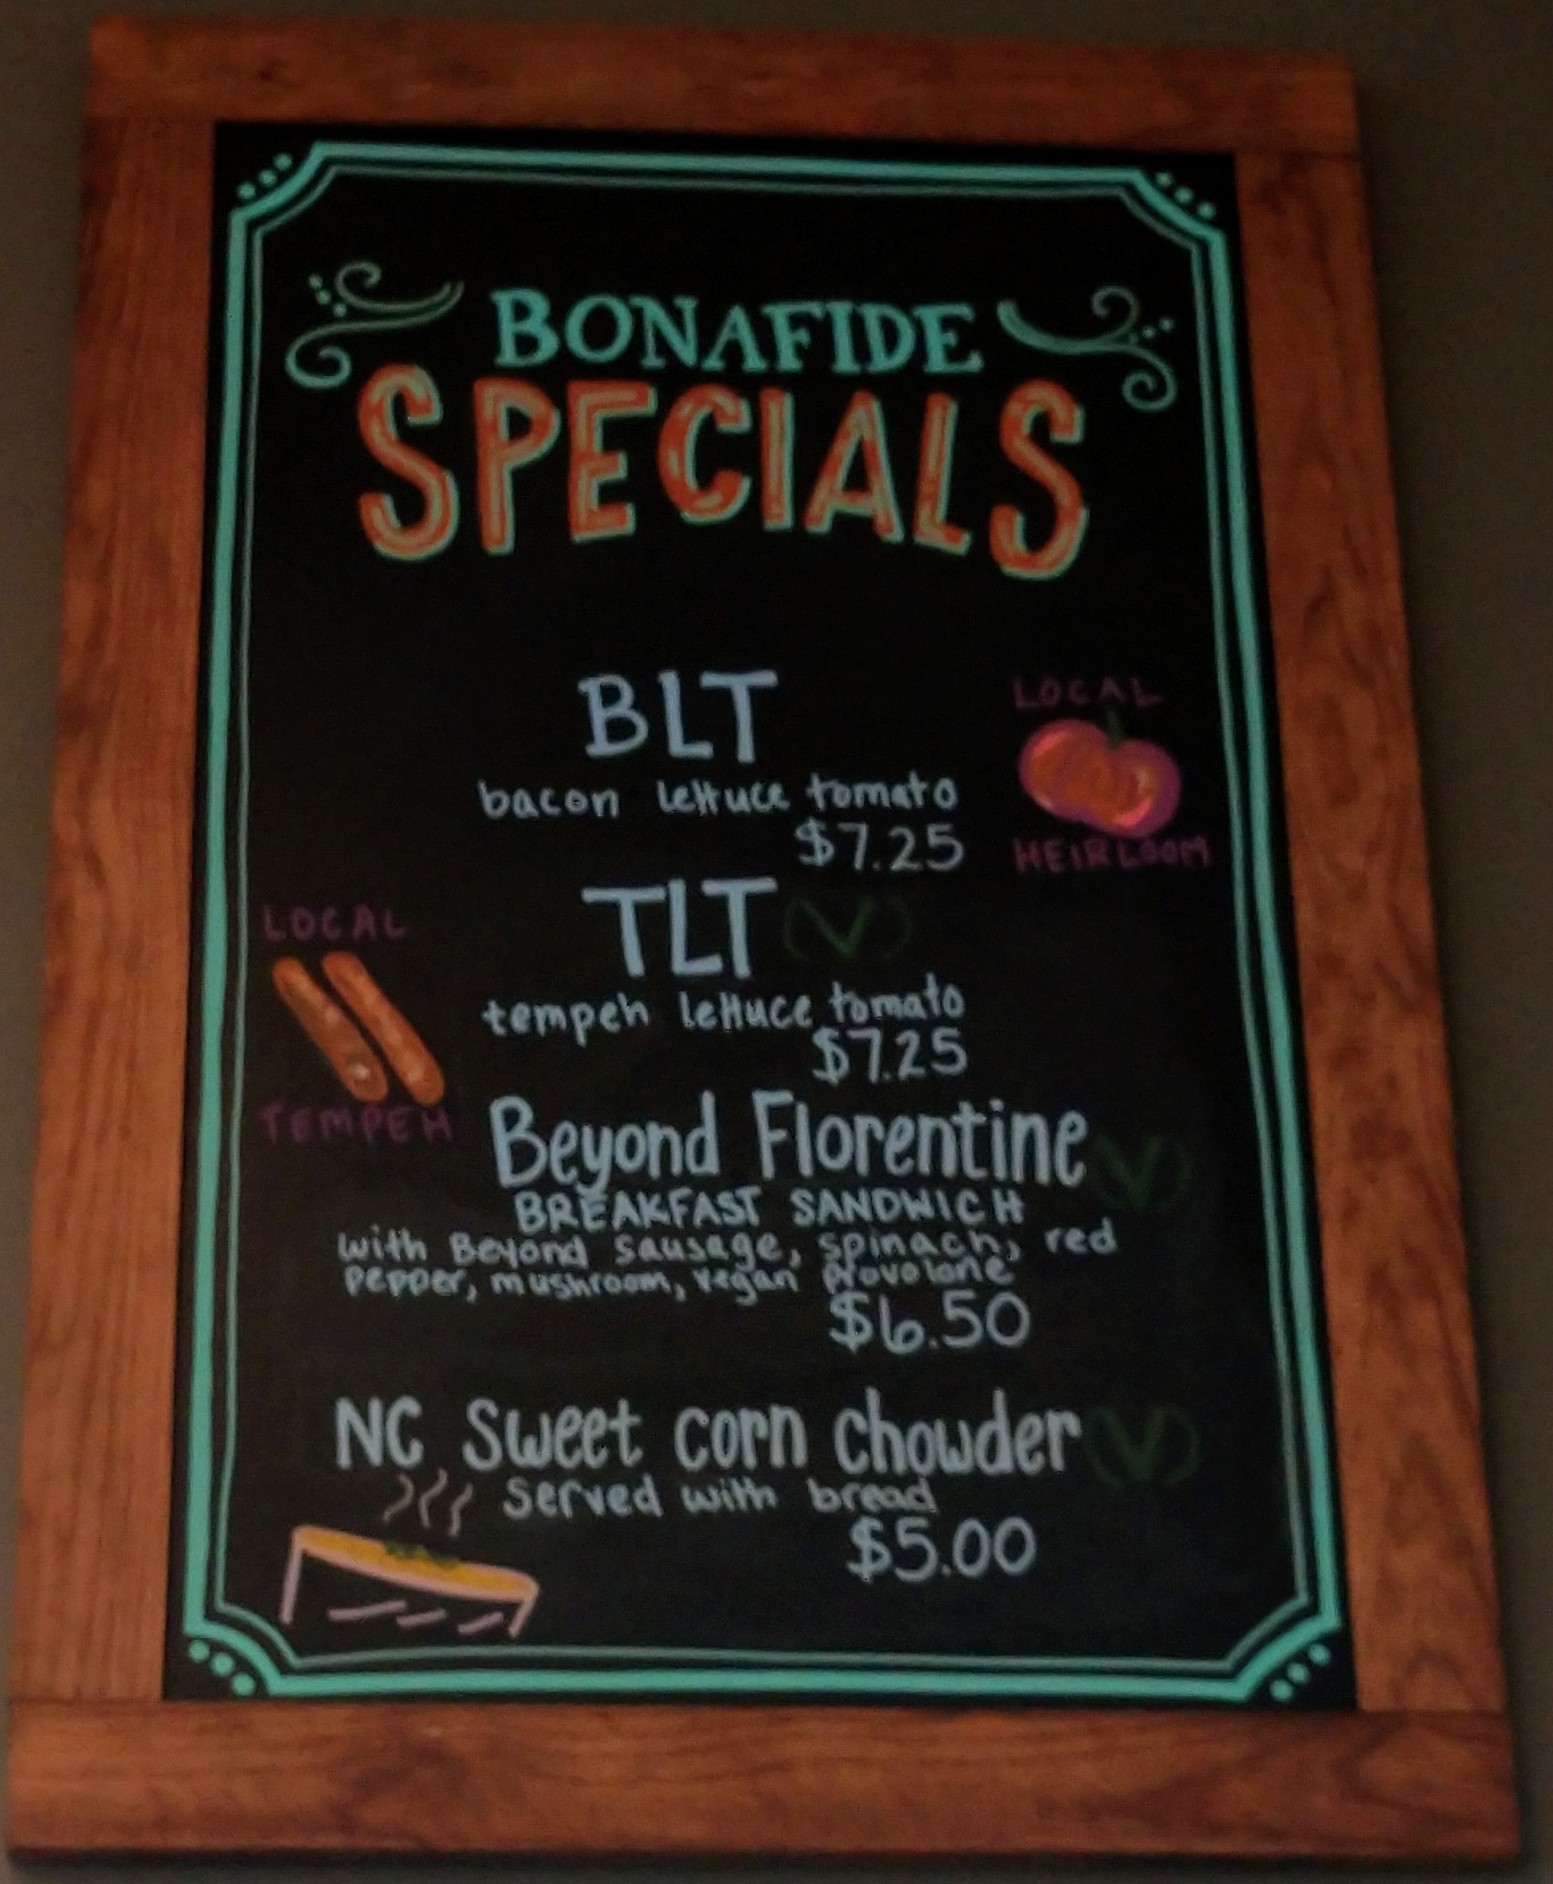 BONAFIDE
SPECIALS
BLT
bacon lettuce tomato
$7.25
LOCAL
HEIRLOOM
TLT (V)
tempeh lettuce tomato
$7.25
LOCAL
TEMPEH
Beyond Florentine (V)
BREAKFAST SANDWICH
with Beyond sausage, spinach, red
pepper, mushroom, vegan provolone
$6.50
NC Sweet corn chowder (V)
served with bread
$5.00